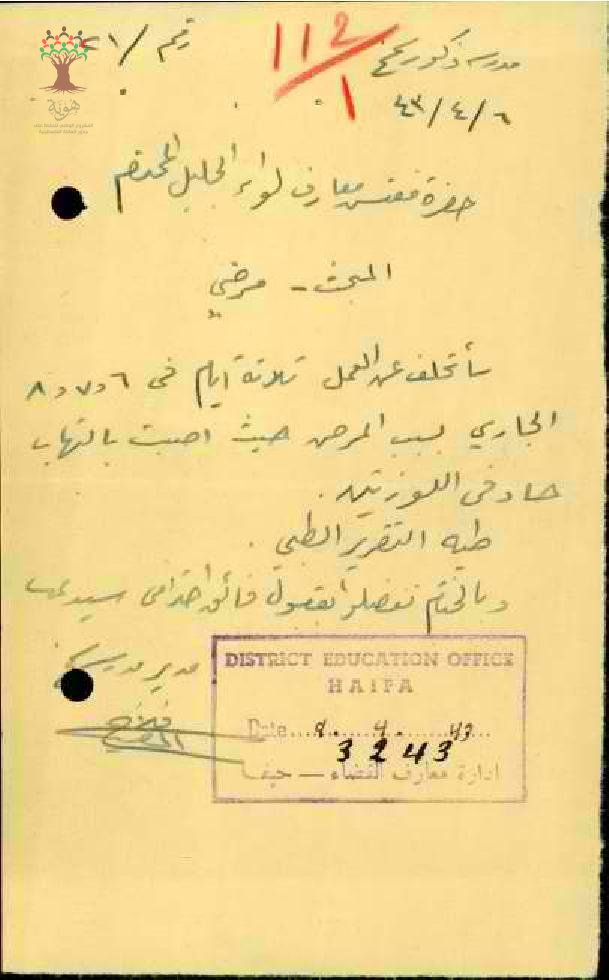 مدرسة ذكور سحم
رقم /٢١
112
1
٤٣/٤/٦
هوية
حضرة مفتش معارف لواء الجليل المحترم
المبحث - مرضي
سأتخلف عن العمل ثلاثة ايام في ٦ و ٧ و ٨
الجاري بسبب المرض حيث اصبت بالتهاب
حاد في اللوزتين .
طيه التقرير الطبي .
وبالختام تفضلوا بقبول فائق احترامي سيدي
مدير مدرسة
DISTRICT EDUCATION OFFICE
HAIFA
Date .... 8 ... 4 ... 43 ...
3243
ادارة معارف القضاء — حيفا